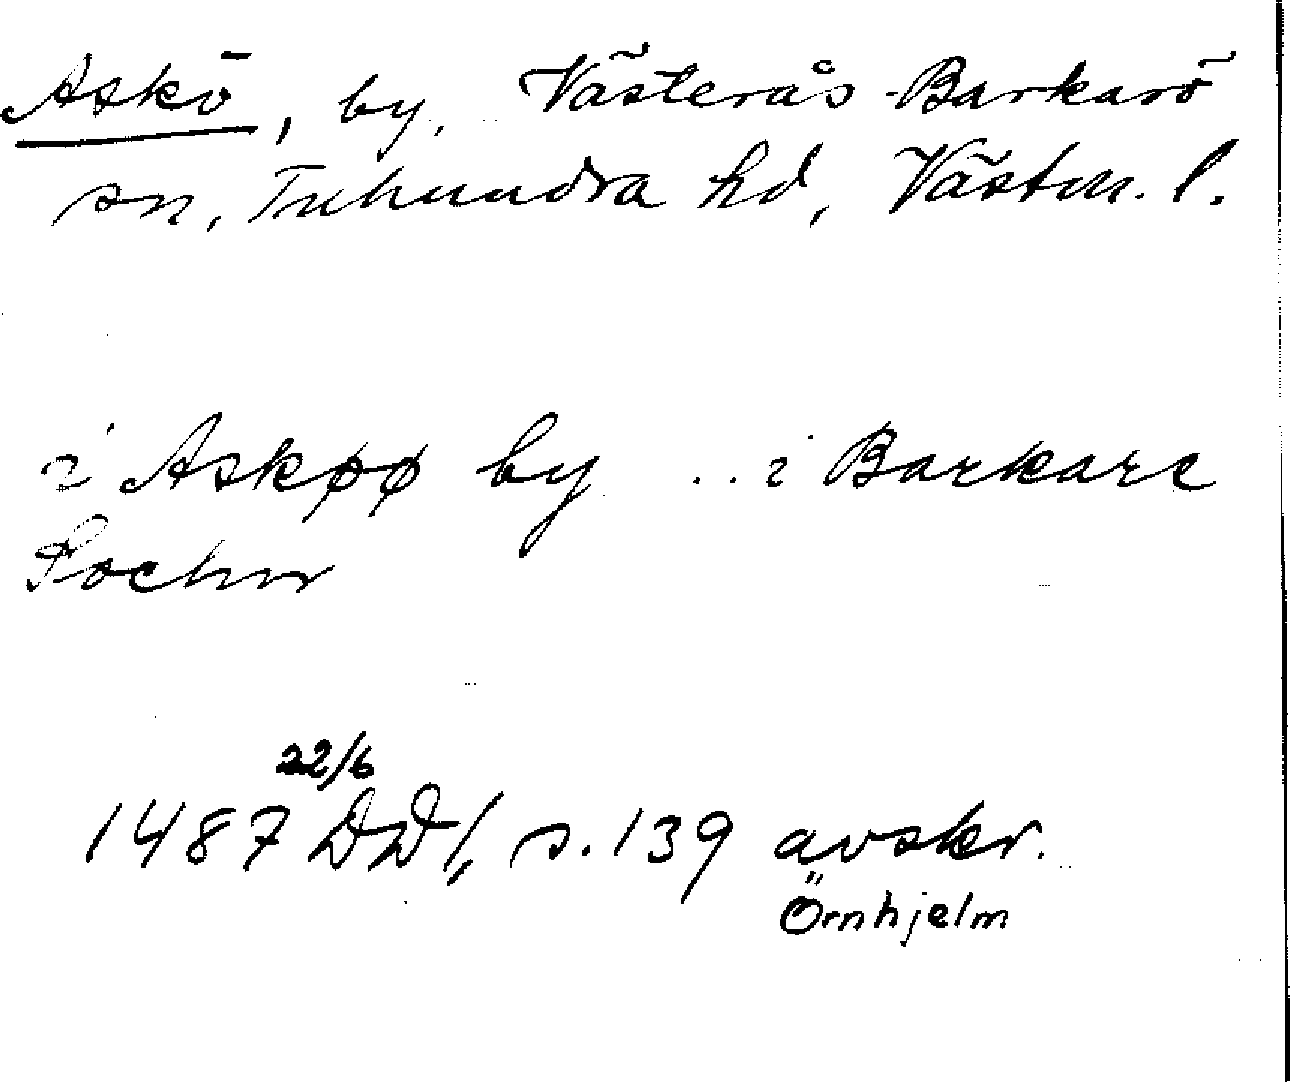 Askö, by, Västerås-Barkarö
sn, Tuhundra hd, Västm. l.
i Askøø by ... i Barkare
Sochn
22/6
1487 DD 1, s. 139 avskr.
Örnhjelm